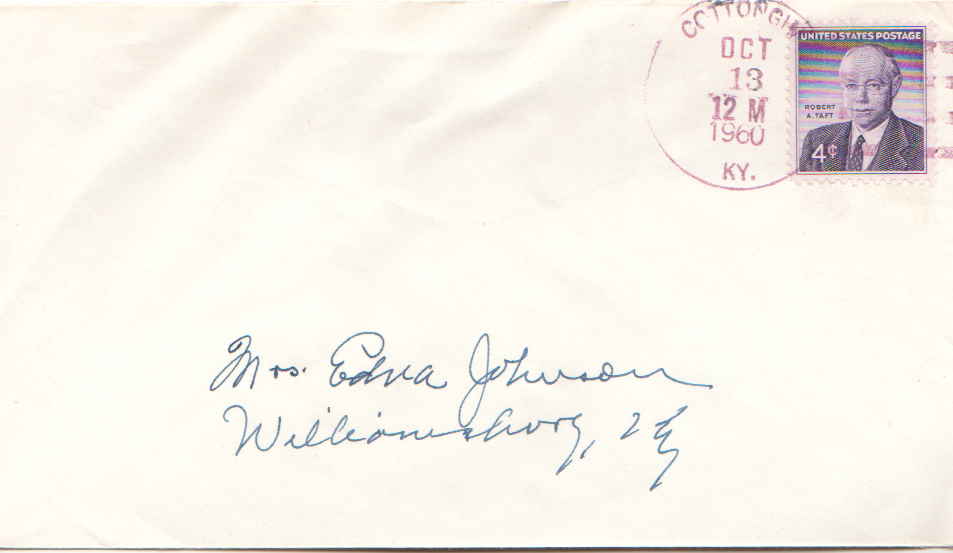 COTTONGH
OCT
13
12 M
1960
KY.
UNITED STATES POSTAGE
ROBERT
A. TAFT
4¢
Mrs. Edna Johnson
Williamsburg, Ky